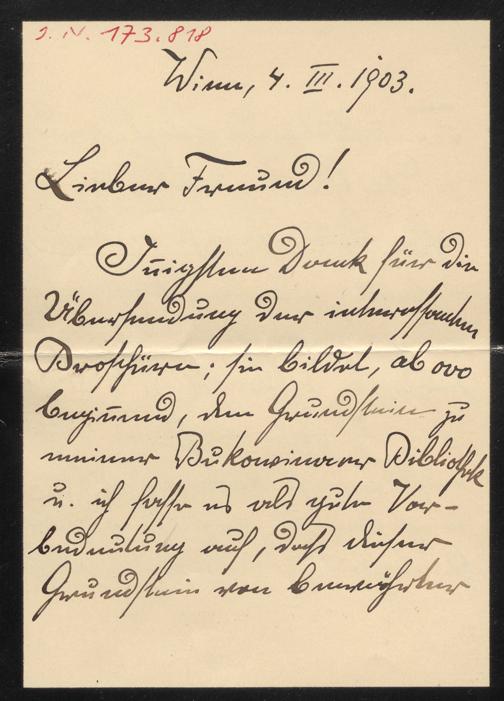 J. N. 173.818
Wien, 4. III. 1903.
Lieber Freund!
Innigsten Dank für die
Übersendung der interessanten
Broschüre; sie bildet, ab ovo
beginnend, den Grundstein zu
meiner Bukowinaer Bibliothek
u. ich fasse es als gute Vor-
bedeutung auf, daß dieser
Grundstein von bewährter